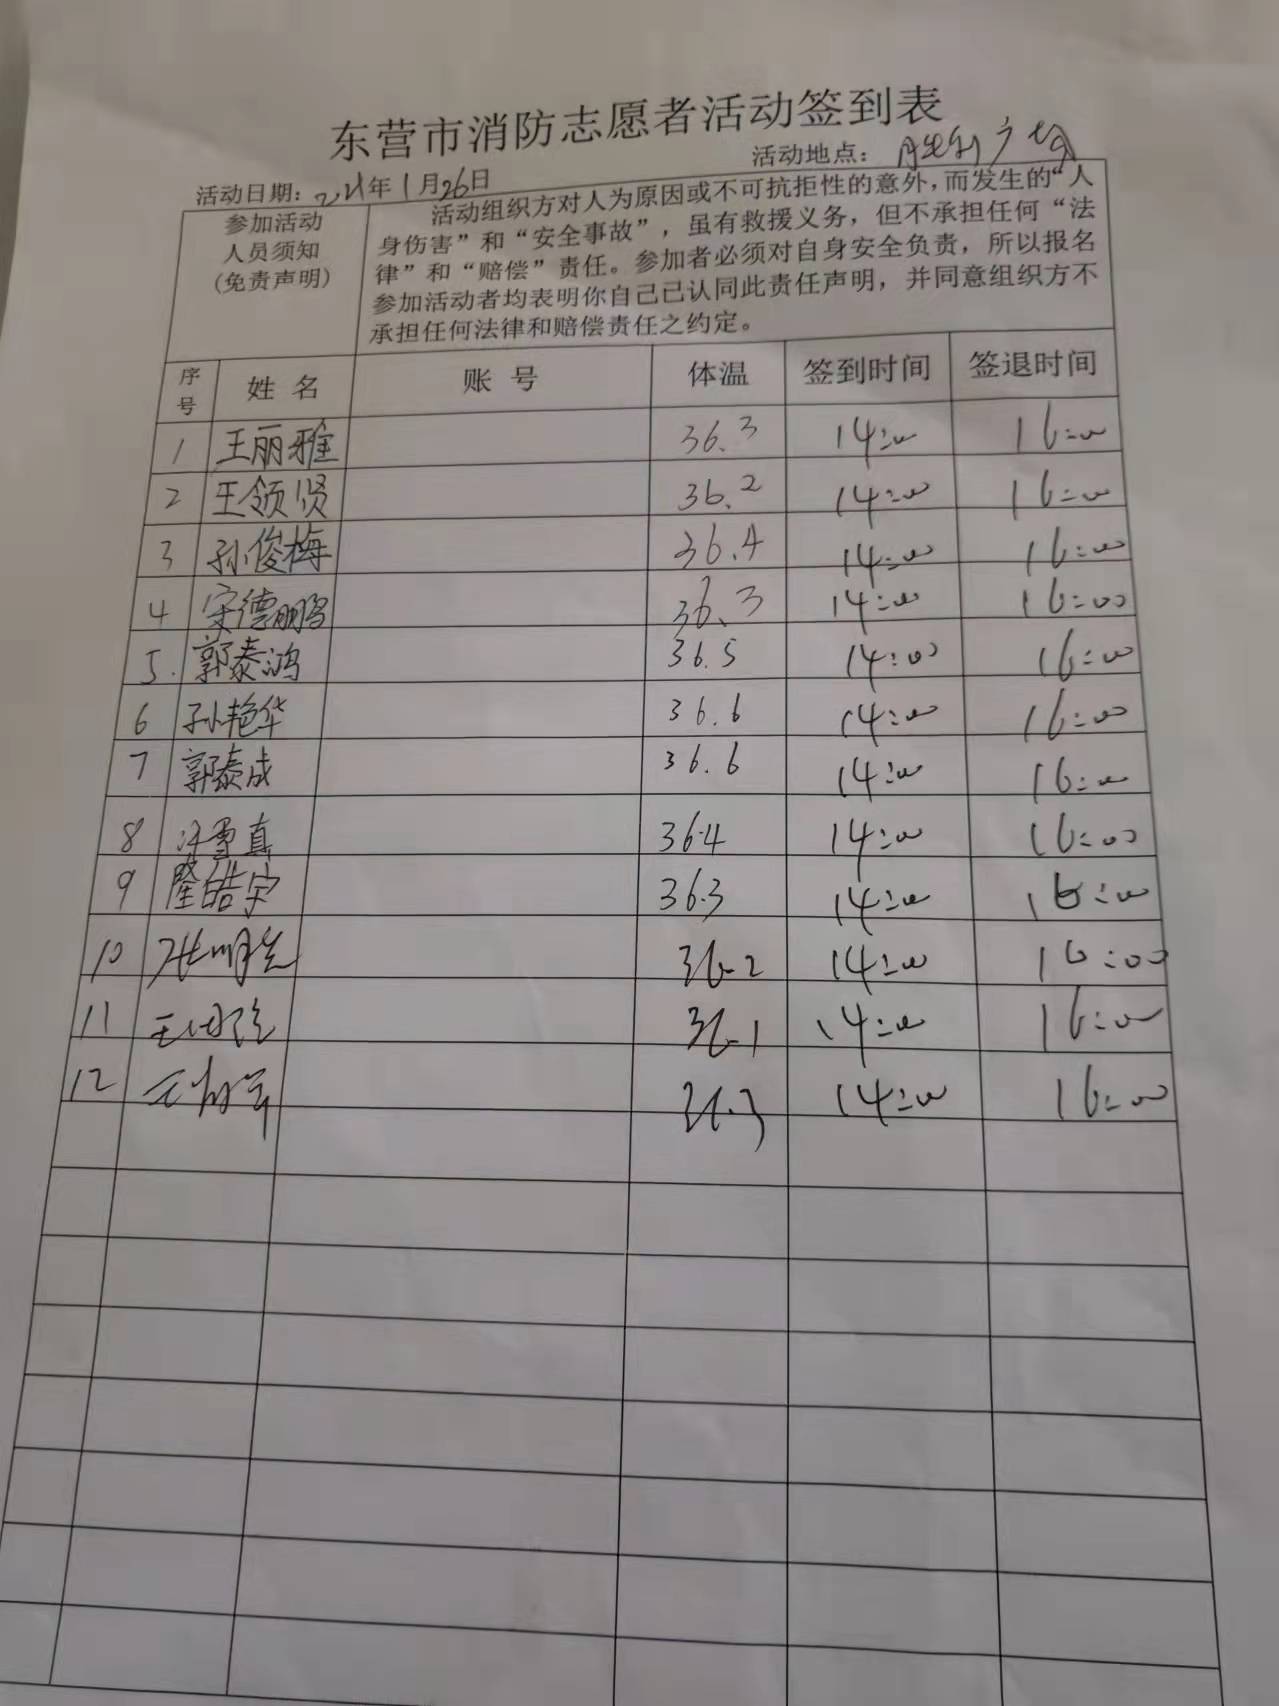 东营市消防志愿者活动签到表
活动日期：2021年1月26日 活动地点：胜利广场
参加活动
人员须知
(免责声明)
活动组织方对人为原因或不可抗拒性的意外，而发生的“人
身伤害”和“安全事故”，虽有救援义务，但不承担任何“法
律”和“赔偿”责任。参加者必须对自身安全负责，所以报名
参加活动者均表明你自己已认同此责任声明，并同意组织方不
承担任何法律和赔偿责任之约定。
序号 姓名 账号 体温 签到时间 签退时间
1 王丽雅 36.3 14:00 16:00
2 王领贤 36.2 14:00 16:00
3 孙俊梅 36.4 14:00 16:00
4 宋德鹏 36.3 14:00 16:00
5. 郭泰鸿 36.5 14:00 16:00
6 孙艳华 36.6 14:00 16:00
7 郭泰成 36.6 14:00 16:00
8 雪真 36.4 14:00 16:00
9 隆皓宇 36.3 14:00 16:00
10 张明 36.2 14:00 16:00
11 王 36.1 14:00 16:00
12 36.3 14:00 16:00